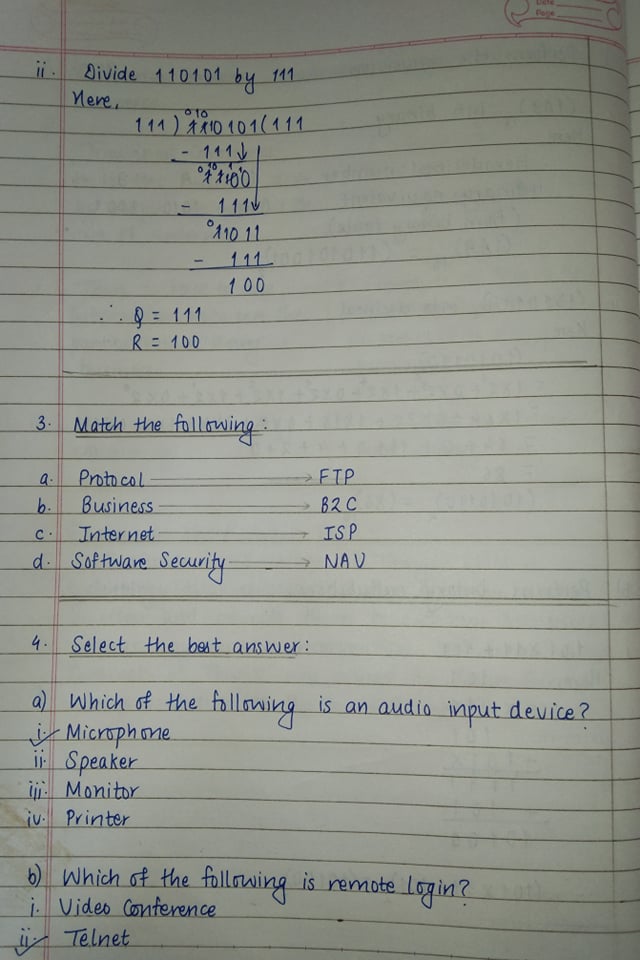 Date
Page
ii. Divide 110101 by 111
Here,
0 10
111 ) 110101 ( 111
- 111
1100
- 111
11011
- 111
100
∴ Q = 111
R = 100
3. Match the following:
a. Protocol → FTP
b. Business → B2C
c. Internet → ISP
d. Software Security → NAV
4. Select the best answer:
a) Which of the following is an audio input device?
i. Microphone
ii. Speaker
iii. Monitor
iv. Printer
b) Which of the following is remote login?
i. Video Conference
ii. Telnet